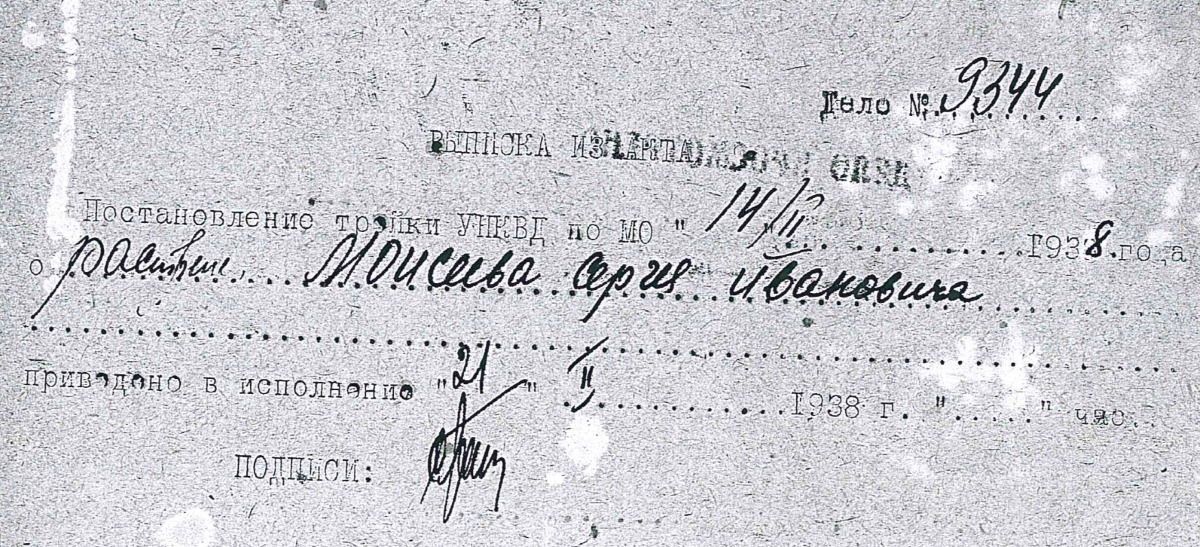 Дело №. 9344
ВЫПИСКА ИЗ АКТА
Постановление тройки УНКВД по МО " 14/II 1938. года
о расстреле Моисеева Сергея Ивановича
приведено в исполнение "21" II 1938 г. "....." час.
ПОДПИСИ: